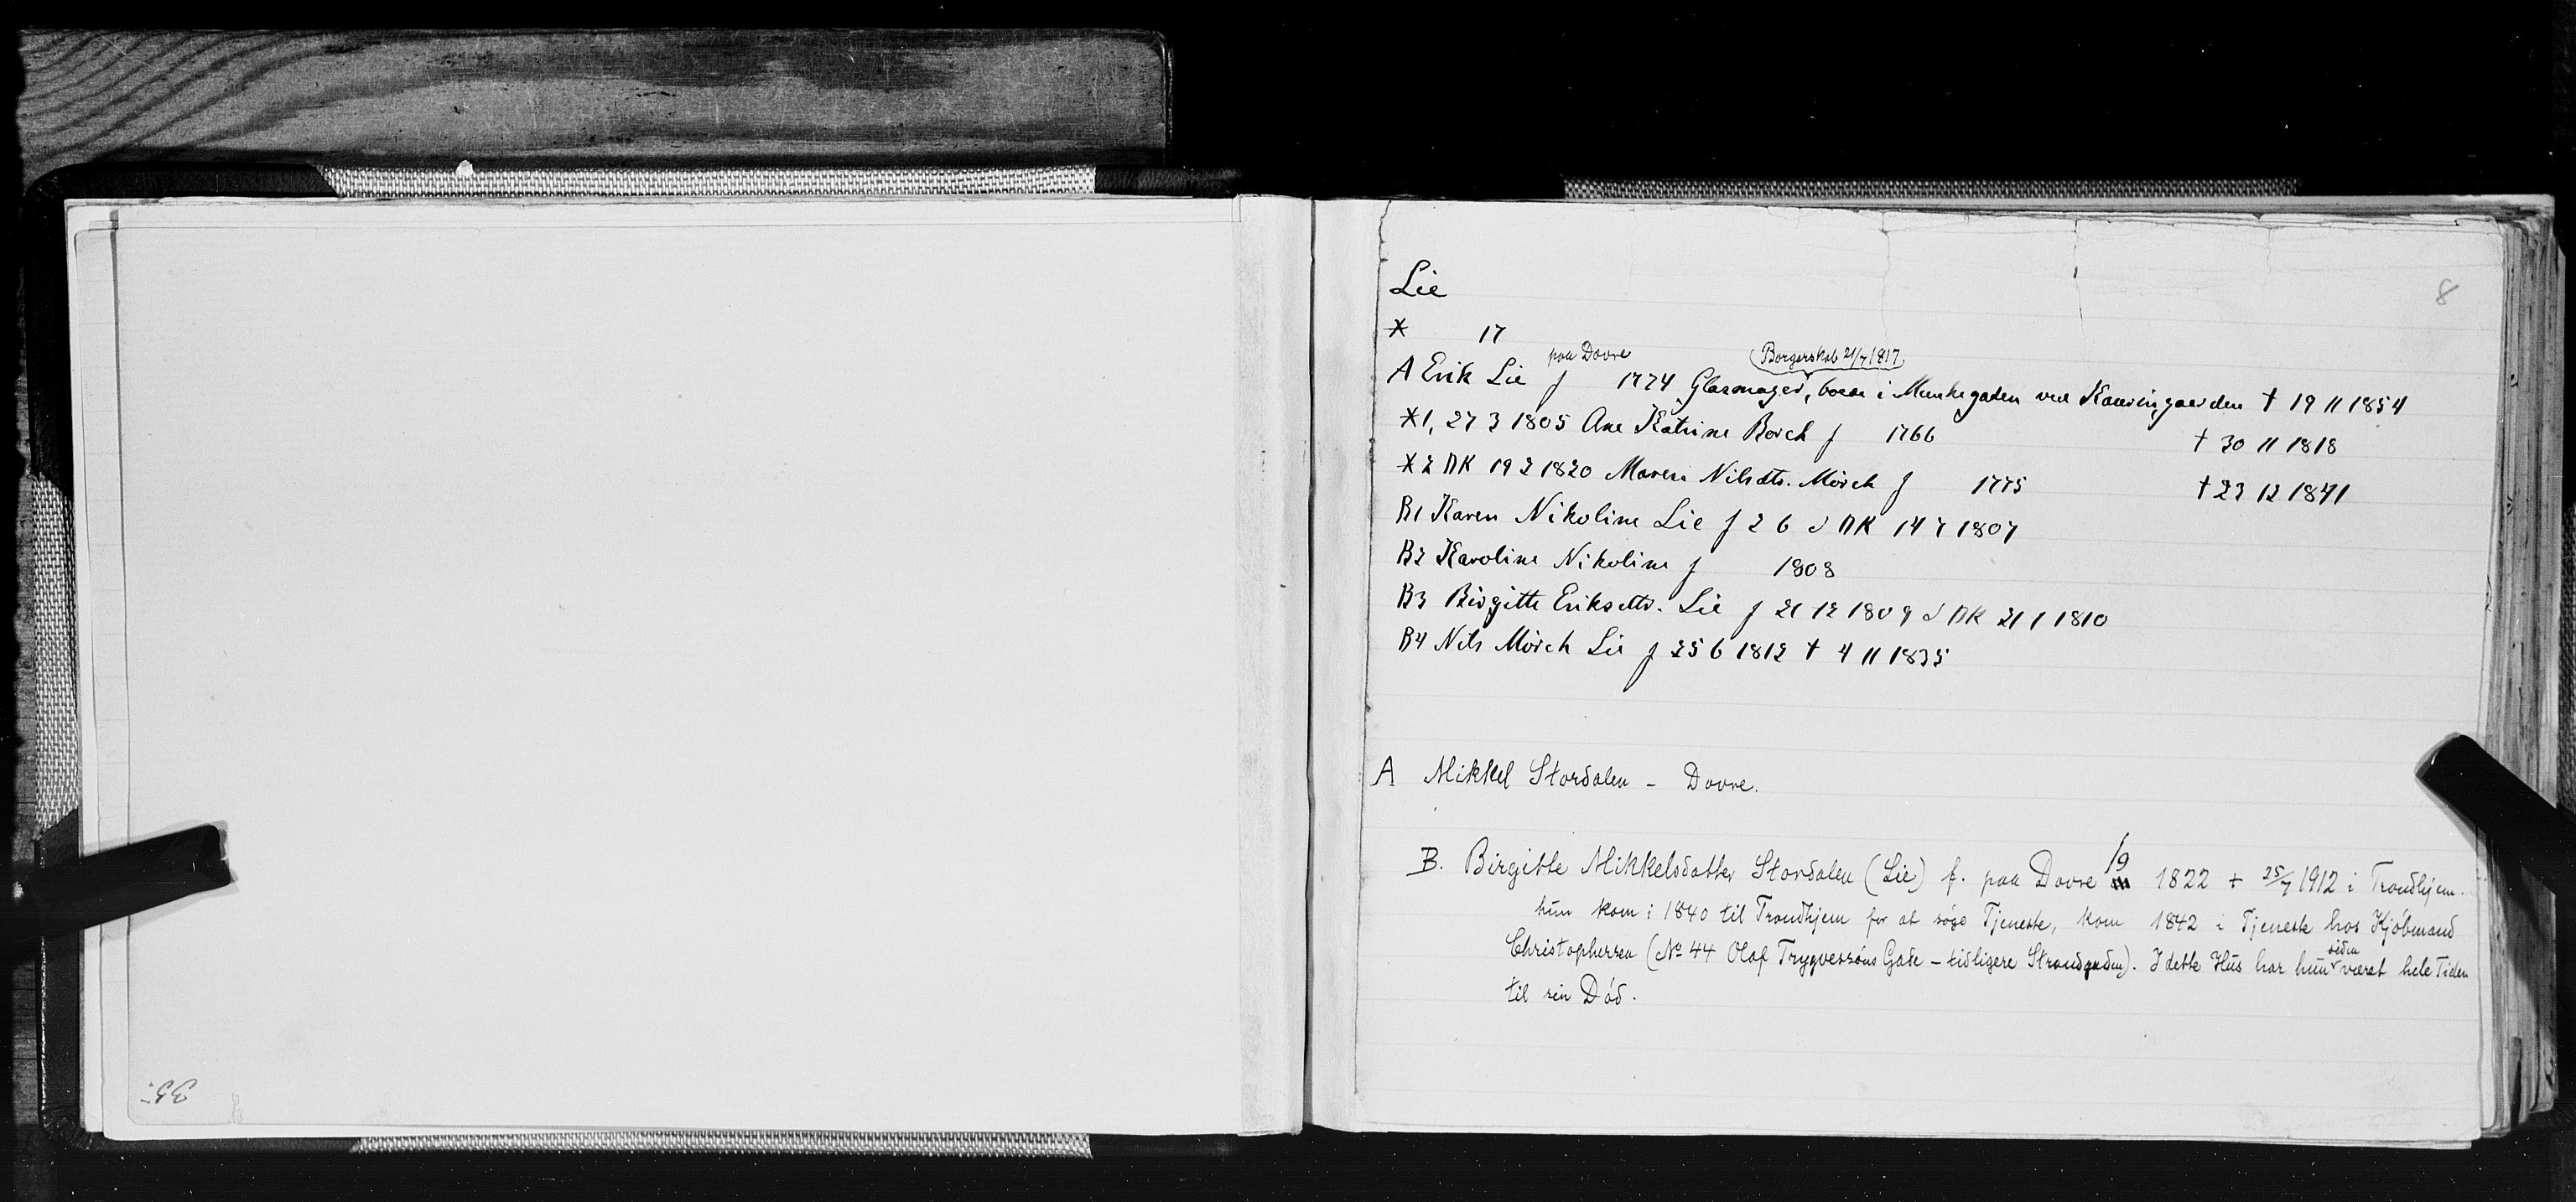 8
Lie
* 17
paa Dovre
Borgerskab 21/7 1817
A Erik Lie f 1774 Glasmager, boede i Munkegaden ved Kauringaarden † 19 11 1854
*1, 27 3 1805 Ane Katrine Borch f 1766 † 30 11 1818
*2 DK 19 2 1820 Maren Nilsdtr. Mörch f 1775 † 23 12 1841
B1 Karen Nikoline Lie f 2 6 d DK 14 7 1807
B2 Karoline Nikoline f 1808
B3 Birgitte Eriksdtr. Lie f 21 12 1809 d DK 21 1 1810
B4 Nils Mörch Lie f 25 6 1812 † 4 11 1835
A Mikkel Stordalen - Dovre.
B. Birgitte Mikkelsdatter Stordalen (Lie) f. paa Dovre 19 1822 + 25/7 1912 i Trondhjem.
hun kom i 1840 til Trondhjem for at söge Tjeneste, kom 1842 i Tjeneste hos Kjöbmand
Christophersen (No 44 Olaf Trygvessöns Gate - tidligere Strandgaden). I dette Hus har hun siden været hele Tiden
til sin Död.
35.